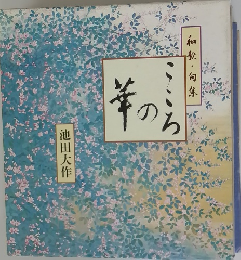 和歌・句集
こころ
の
華
池田大作